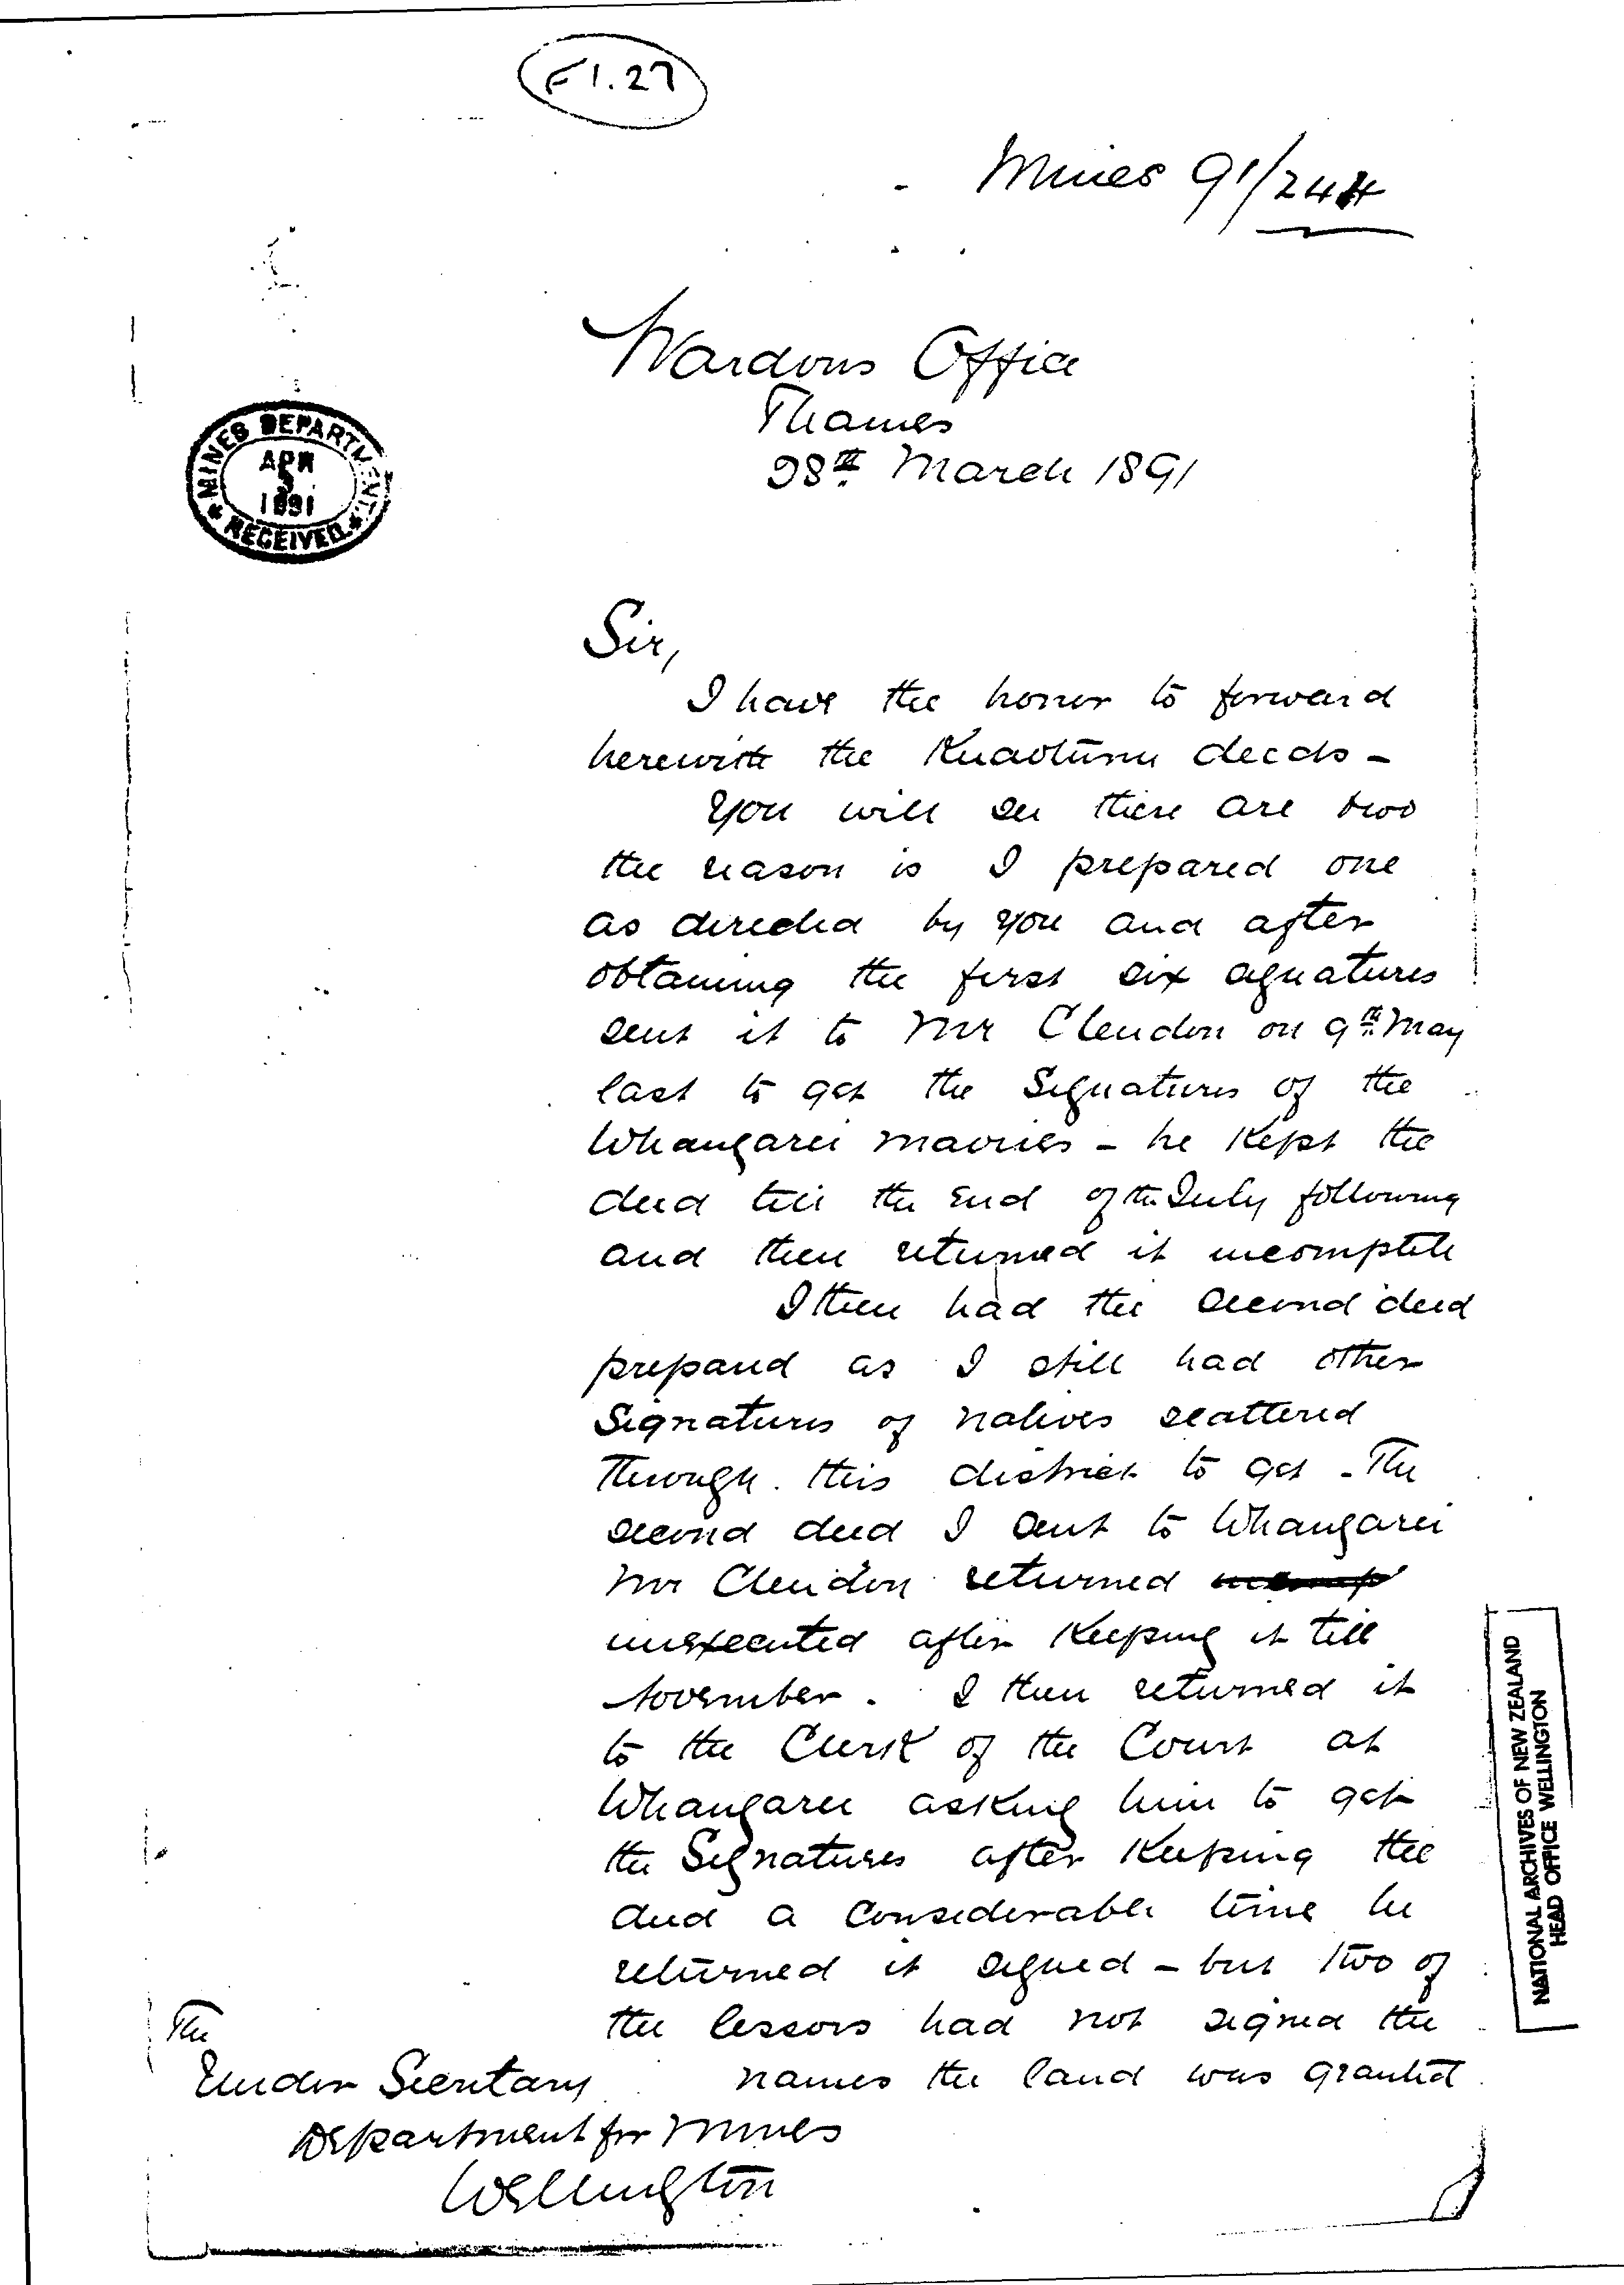 F1.27
Mines 91/244
Wardens Office
Thames
28th March 1891
MINES DEPARTMENT
APR
3
1891
RECEIVED
Sir,
I have the honor to forward
herewith the Kuaotunu deeds -
You will see there are two
the reason is I prepared one
as directed by you and after
obtaining the first six signatures
sent it to Mr Clendon on 9th May
last to get the Signatures of the
Whangarei maories - he kept the
deed till the end of the July following
and then returned it incomplete
I then had the second deed
prepared as I still had other
Signatures of natives scattered
Through this district to get - The
second deed I sent to Whangarei
Mr Clendon returned
unexecuted after keeping it till
November. I then returned it
to the Clerk of the Court at
Whangarei asking him to get
the Signatures after keeping the
deed a considerable time he
returned it signed - but two of
the lessors had not signed the
names the land was granted
The
Under Secretary
Department for Mines
Wellington
NATIONAL ARCHIVES OF NEW ZEALAND
HEAD OFFICE WELLINGTON